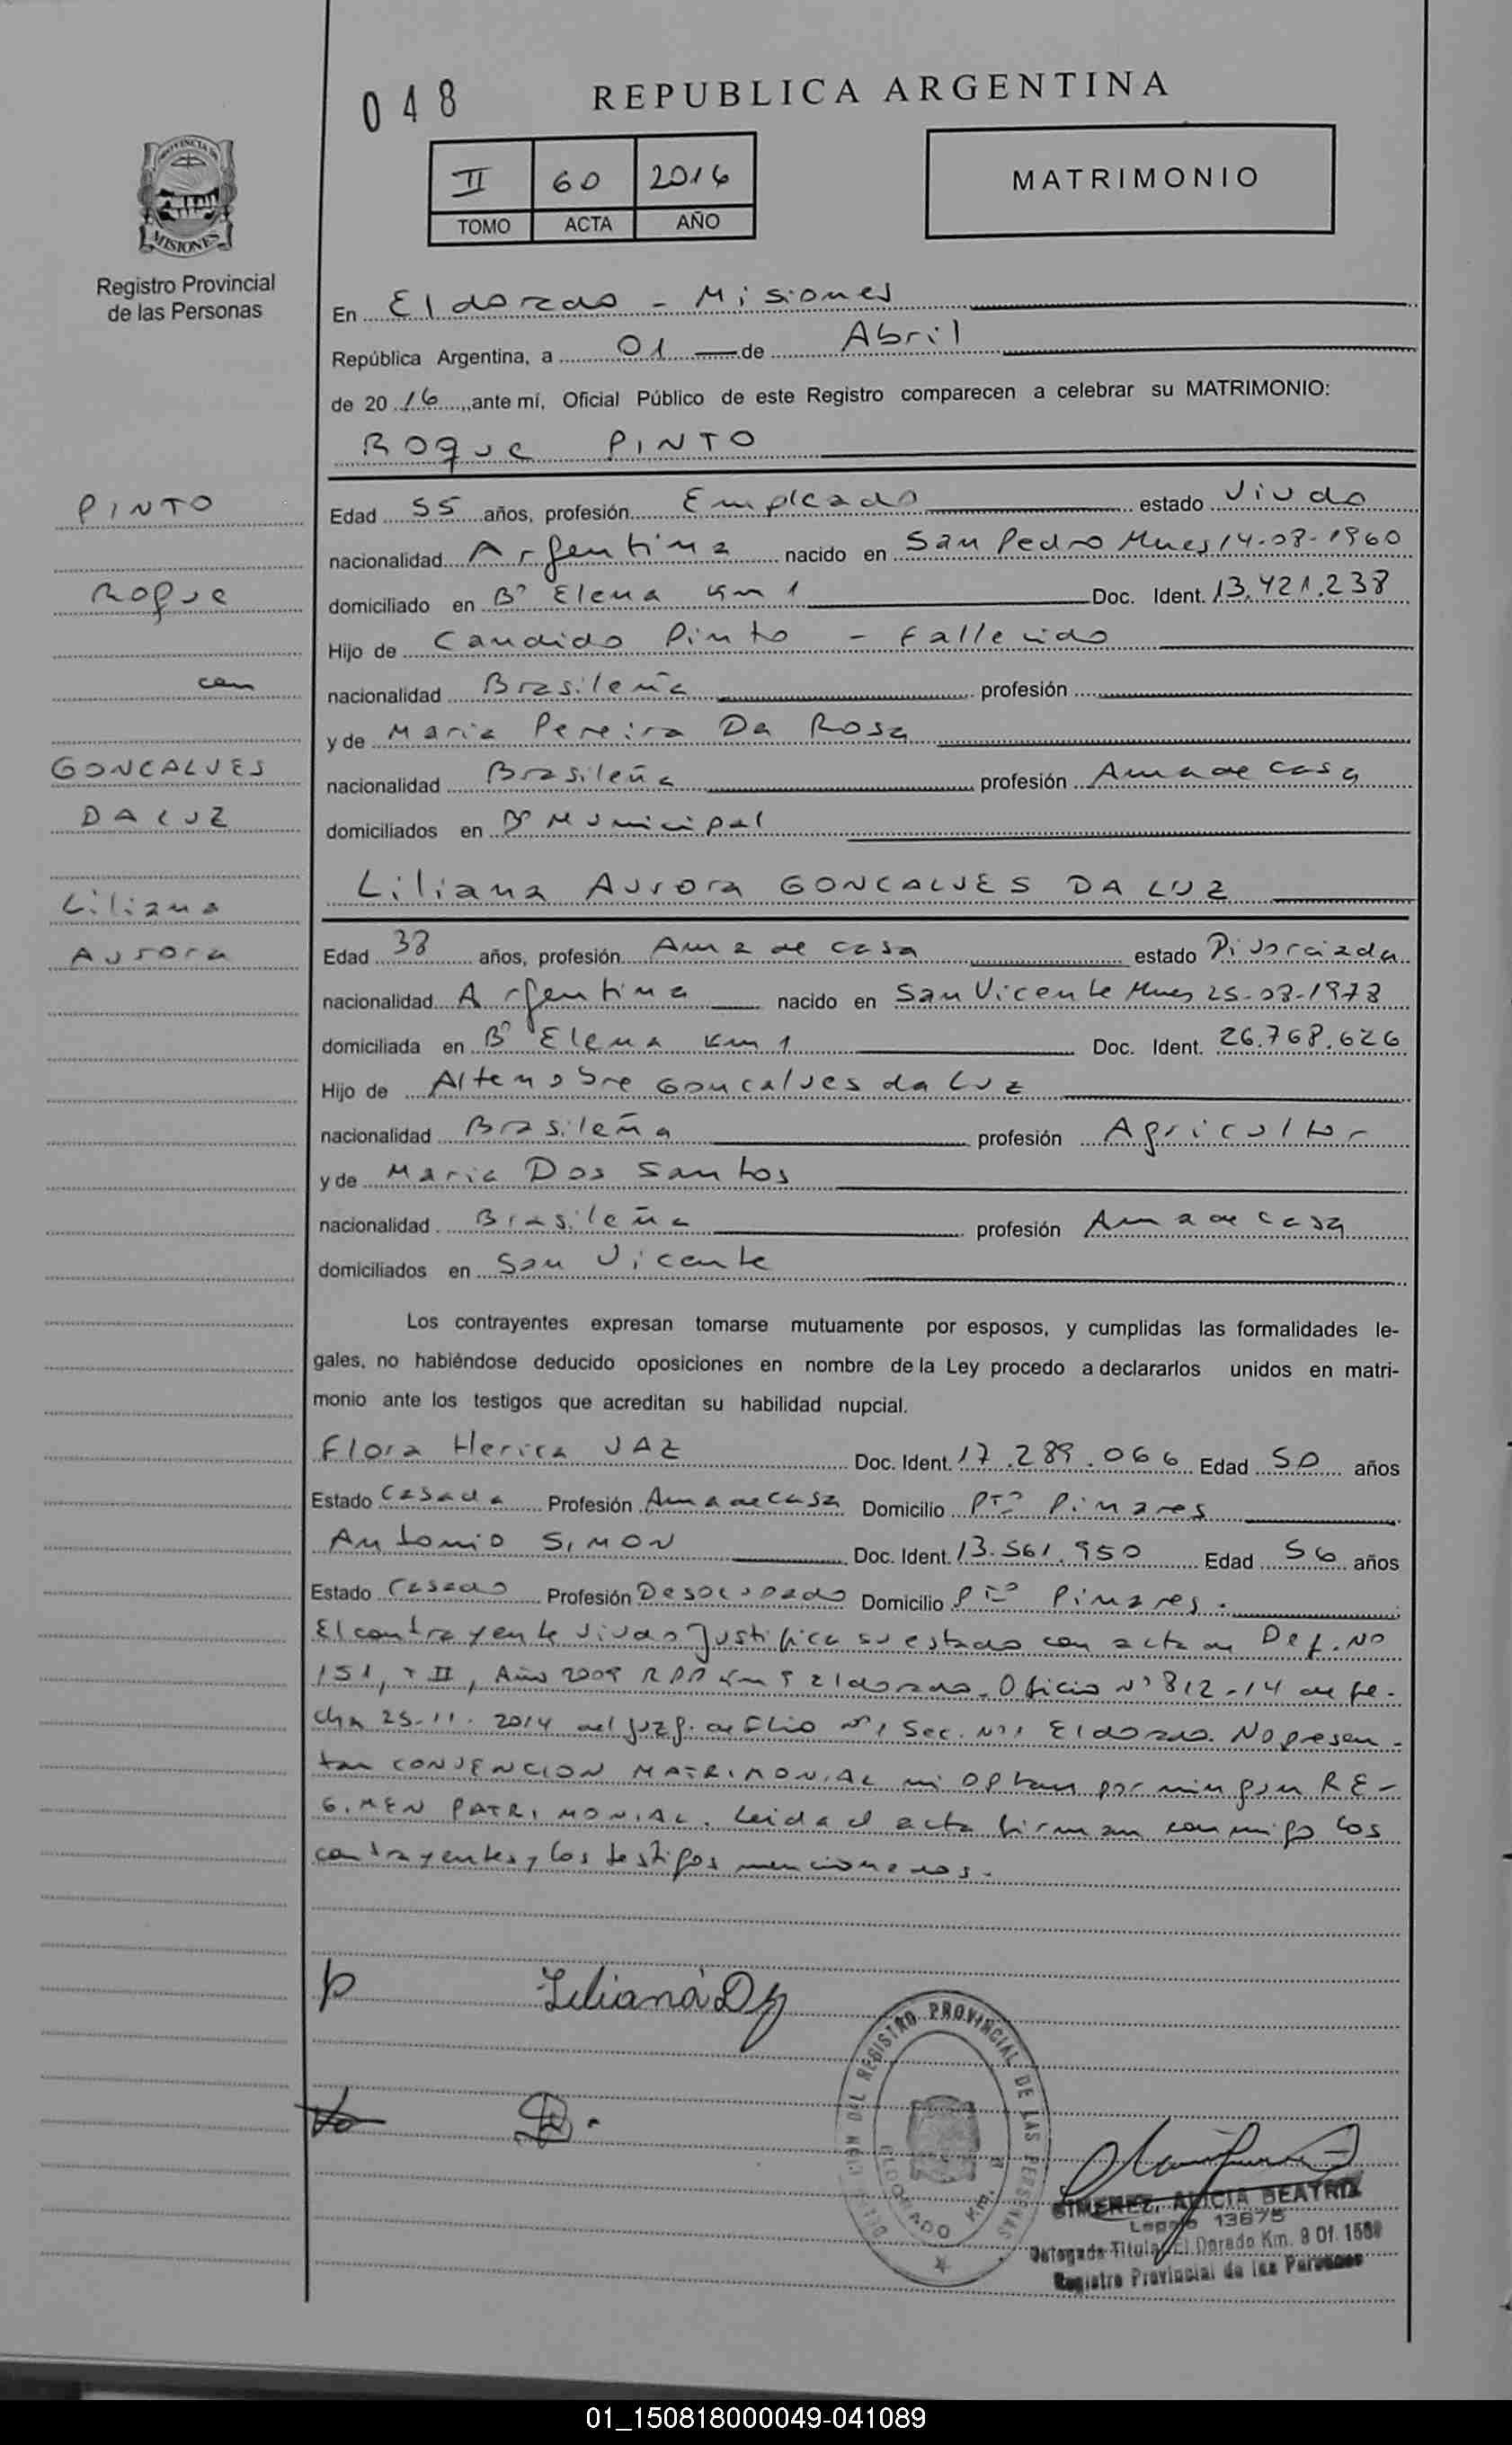 048
REPUBLICA ARGENTINA
II 60 2016
TOMO ACTA AÑO
MATRIMONIO
MISIONES
Registro Provincial
de las Personas
En Eldorado - Misiones
República Argentina, a 01 de Abril
de 20 16, ante mí, Oficial Público de este Registro comparecen a celebrar su MATRIMONIO:
Roque PINTO
PINTO
Roque
con
GONCALVES
DA LUZ
Liliana
Aurora
Edad 55 años, profesión Empleado estado Viudo
nacionalidad Argentina nacido en San Pedro Mnes 14-08-1960
domiciliado en Bº Elena Km 1 Doc. Ident. 13.421.238
Hijo de Candido Pinto - Fallecido
nacionalidad Brasileña profesión
y de Maria Pereira Da Rosa
nacionalidad Brasileña profesión Ama de casa
domiciliados en Bº Municipal
Liliana Aurora GONCALVES DA LUZ
Edad 38 años, profesión Ama de casa estado Divorciada
nacionalidad Argentina nacido en San Vicente Mnes 25-03-1978
domiciliada en Bº Elena Km 1 Doc. Ident. 26.768.626
Hijo de Goncalves da Luz
nacionalidad Brasileña profesión Agricultor
y de Maria Dos Santos
nacionalidad Brasileña profesión Ama de casa
domiciliados en San Vicente
Los contrayentes expresan tomarse mutuamente por esposos, y cumplidas las formalidades le-
gales, no habiéndose deducido oposiciones en nombre de la Ley procedo a declararlos unidos en matri-
monio ante los testigos que acreditan su habilidad nupcial.
Flora Herica VAZ Doc. Ident. 17.289.066 Edad 50 años
Estado Casada Profesión Ama de casa Domicilio Pto Pinares
Antonio SIMON Doc. Ident. 13.561.950 Edad 56 años
Estado Casado Profesión Desocupado Domicilio Pto Pinares.
El contrayente viudo justifica su estado con acta de Def. Nº
151, T II, Año 2009 RPP Km 9 Eldorado. Oficio Nº 812-14 de fe-
cha 25-11-2014 del Juzg. de Flia Nº 1 Sec. Nº 1 Eldorado. No presen-
tan CONVENCION MATRIMONIAL ni optan por ningun RE-
GIMEN PATRIMONIAL. Leida el acta firman conmigo los
contrayentes y los testigos mencionados.
Liliana D
REGISTRO PROVINCIAL DE LAS PERSONAS
ELDORADO KM. 9
GIMENEZ, ALICIA BEATRIZ
Legajo 13675
Delegada Titular El Dorado Km. 9 Of. 1559
Registro Provincial de las Personas
01_150818000049-041089